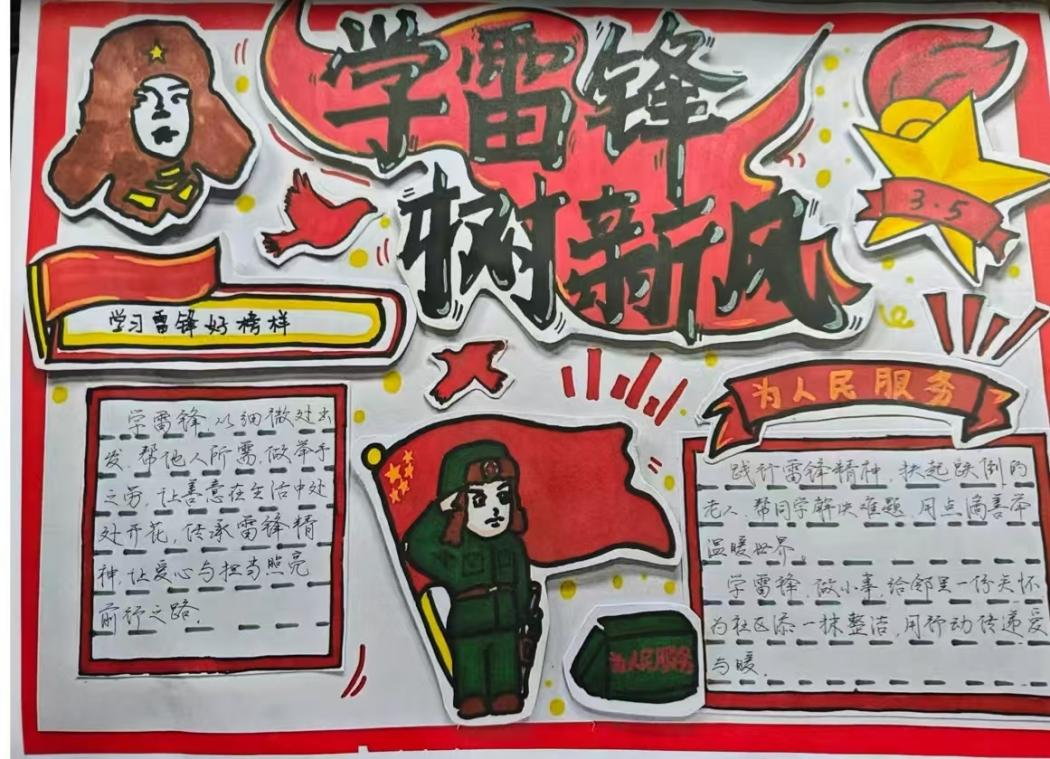 学雷锋
树新风
3.5
学习雷锋好榜样
为人民服务
学雷锋,以细微处出
发,帮他人所需,做举手
之劳,让善意在生活中处
处开花,传承雷锋精
神,让爱心与担当照亮
前行之路.
践行雷锋精神,扶起跌倒的
老人,帮同学解决难题,用点滴善举
温暖世界。
学雷锋,做小事,给邻里一份关怀
为社区添一抹整洁,用行动传递爱
与暖.
为人民服务